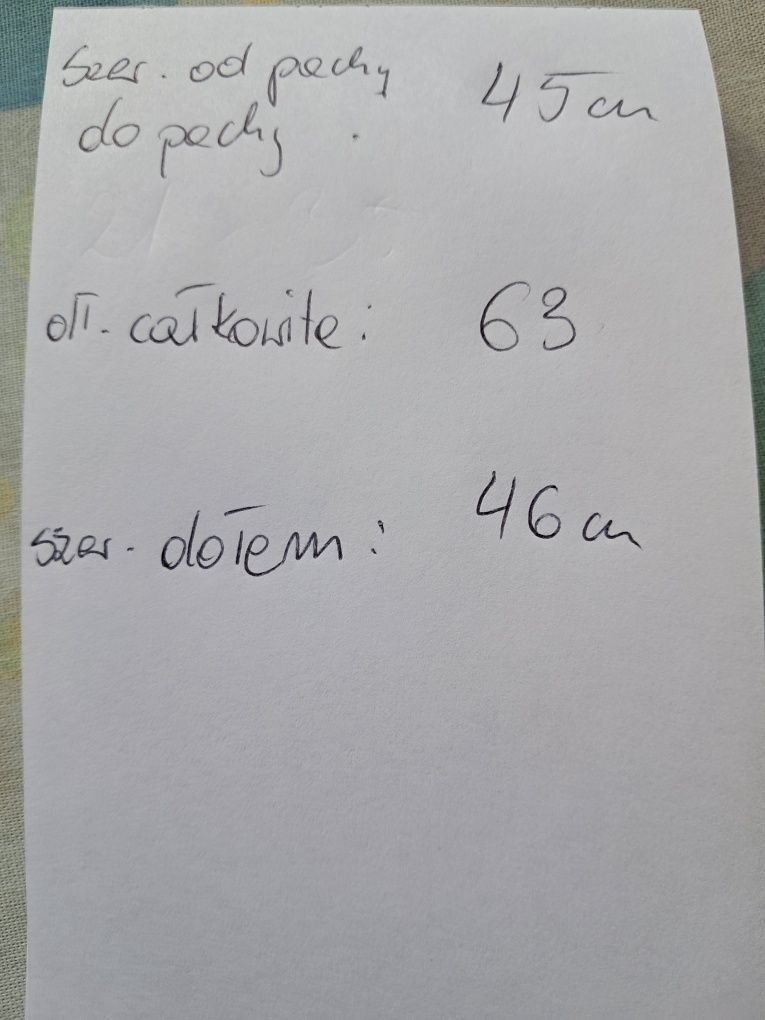 szer. od pachy 45 cm
do pachy.
dł. całkowite: 63
szer. dołem: 46 cm